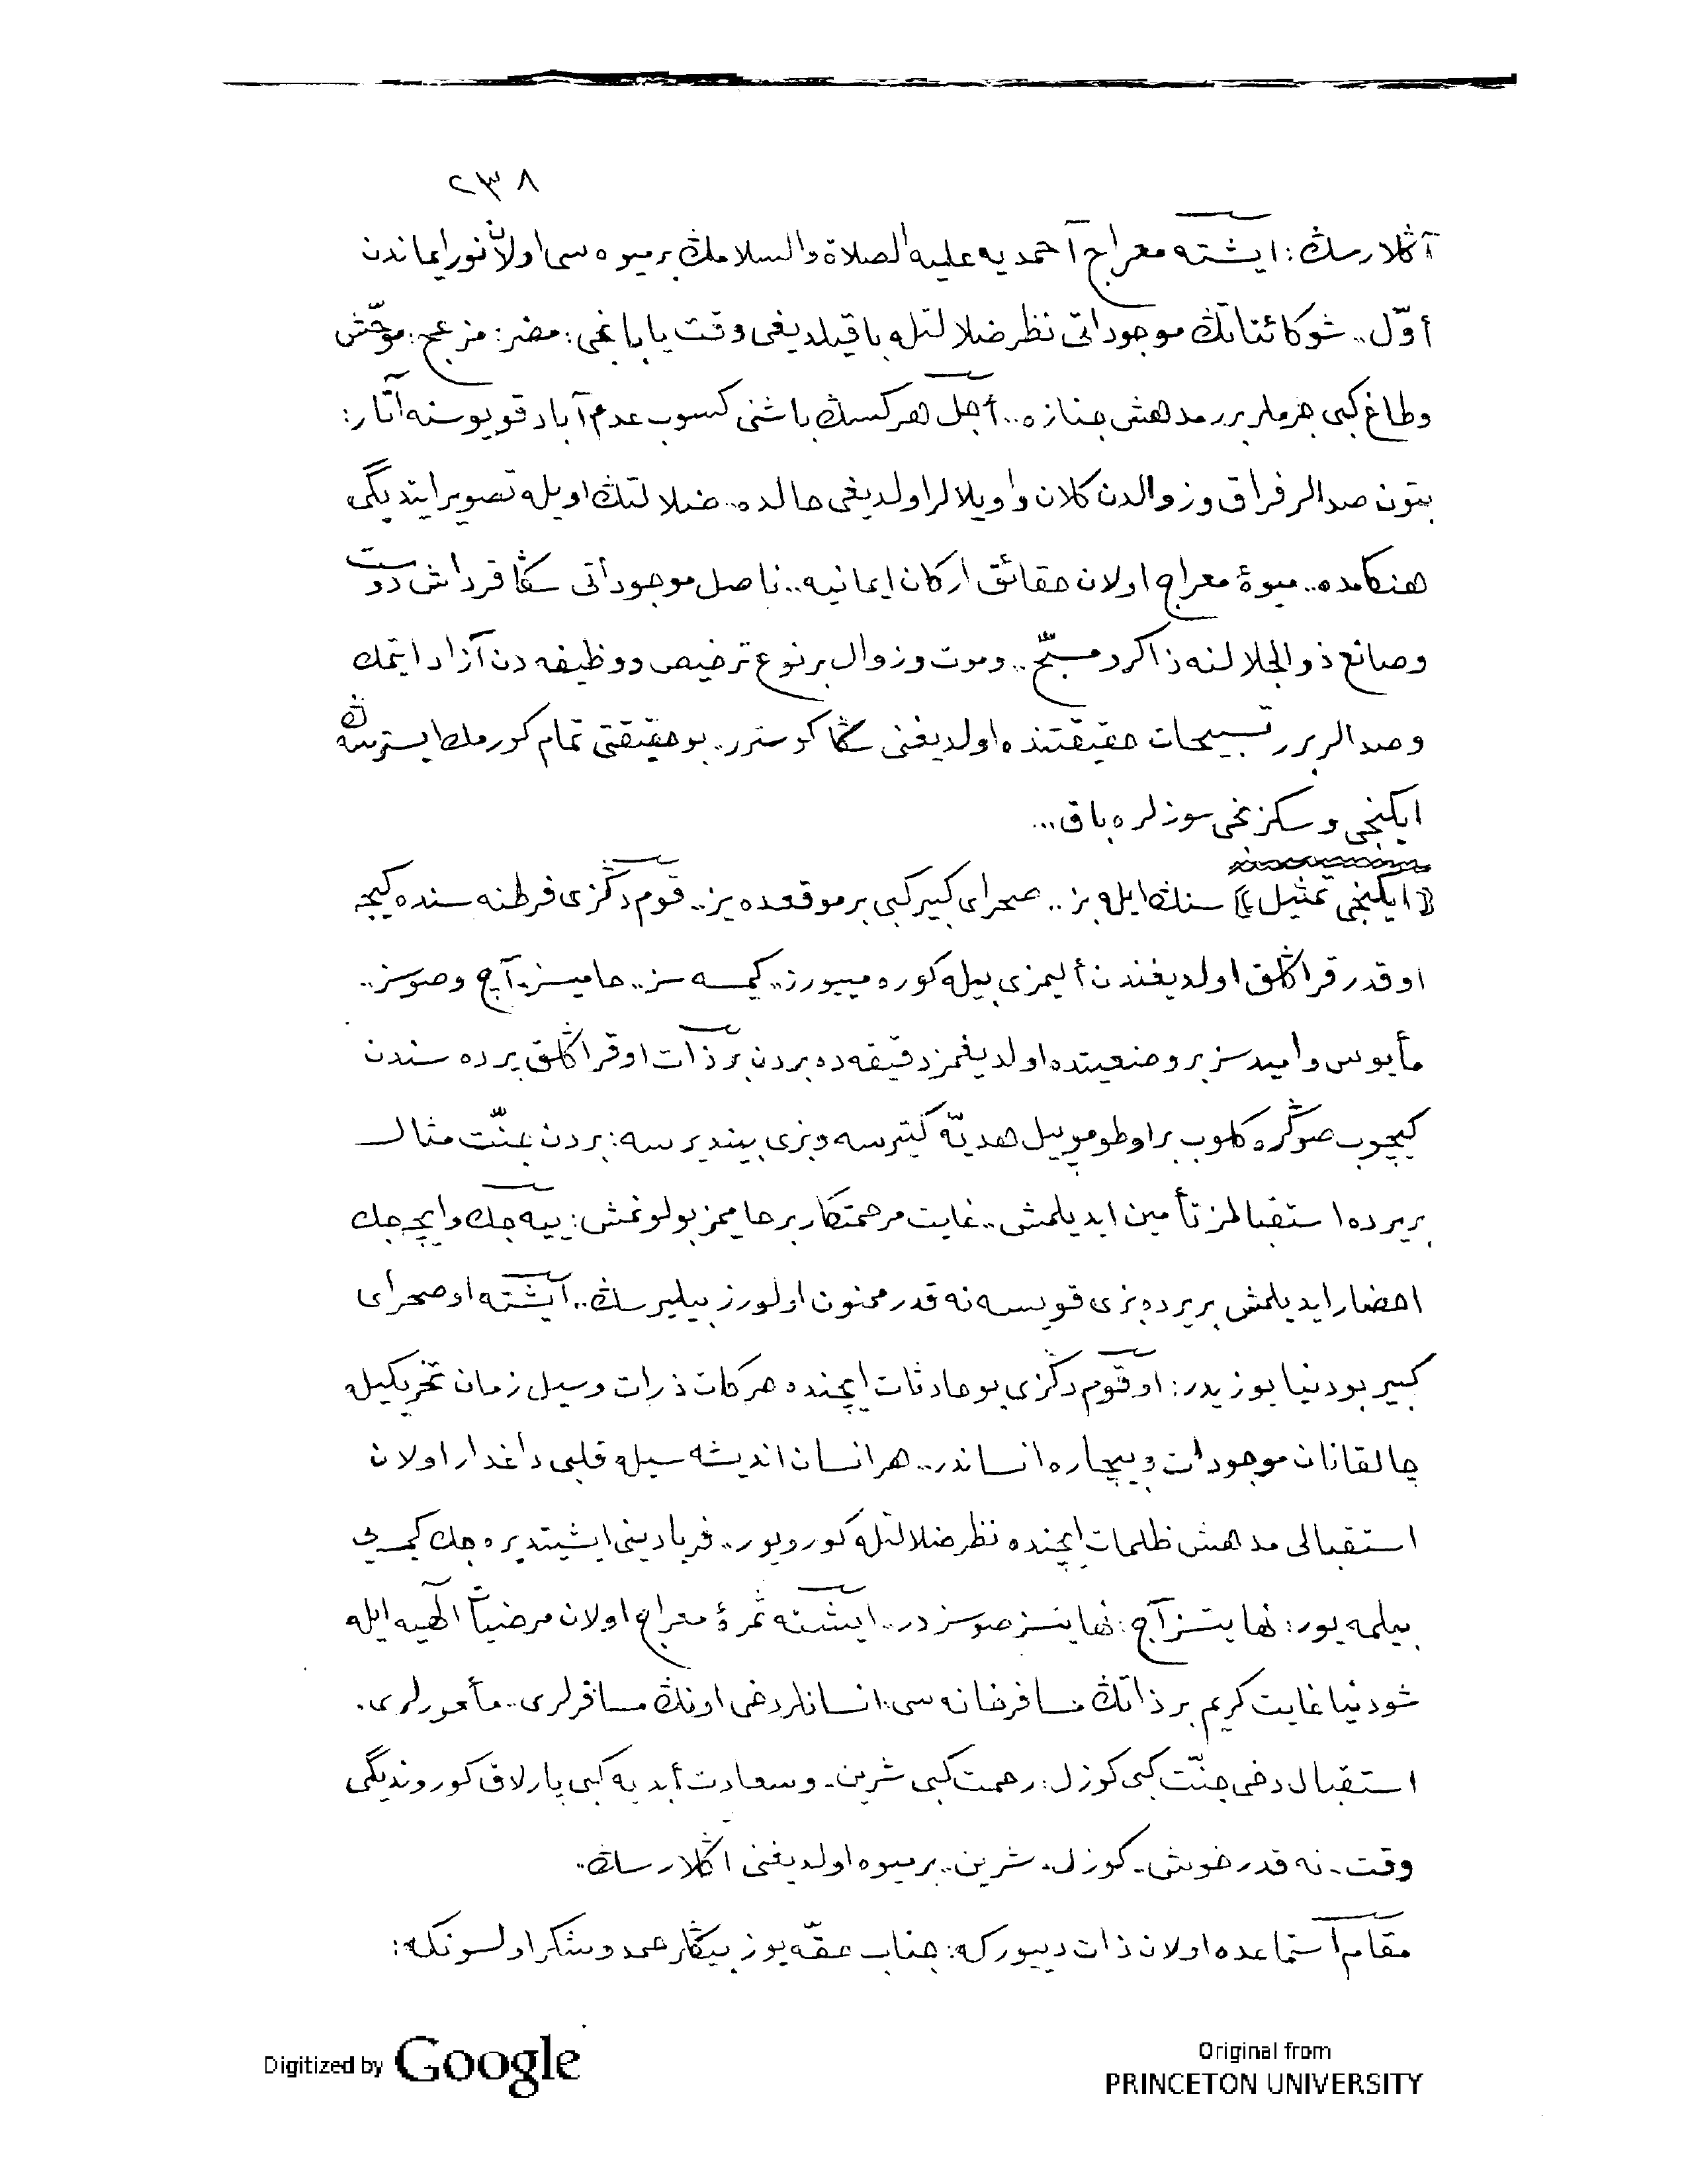 ٢٣٨
آڭلارسڭ: ايشته معراج احمديه عليه الصلاة والسلامڭ بر ميوه سى اولان نور ايماندن
أوّل.. شو كائناتڭ موجوداتى نظر ضلالتله باقيلديغى وقت يابانجى: مضر: مزعج: موحّش
وطاغ كبى جرملر برر مدهش جنازه.. أجل هركسڭ باشنى كسوب عدم آباد قويوسنه آتار:
بتون صدالر فراق وزوالدن كلان واويلالر اولديغى حالده.. ضلالتڭ اويله تصوير ايتديگى
هنكامده.. ميوۀ معراج اولان حقائق اركان ايمانيه.. ناصل موجوداتى سڭا قرداش دوست
وصانع ذوالجلالنه ذاكر ومسبّح.. وموت وزوال بر نوع ترخيص ووظيفه دن آزاد ايتمك
وصدالر برر تسبيحات حقيقتنده اولديغنى سڭا كوسترر.. بو حقيقتى تمام كورمك ايسترسه ڭ
ايكنجى و سكزنجى سوزلره باق...
﴿ايكنجى تمثيل﴾ سنڭ ايله بز.. صحراى كبير كبى بر موقعده يز.. قوم دڭزى فرطنه سنده كيجه
او قدر قراڭلق اولديغندن أليمزى بيله كوره ميیورز.. كيمسه سز.. حاميسز. آچ وصوسز..
مأيوس واميدسز بر وضعيتده اولديغمز دقيقه ده بردن بر ذات او قراڭلق پرده سندن
كيچوب صوڭره كلوب بر اوطوموبيل هديّه كتيرسه وبزى بينديرسه: بردن جنّت مثال
بر يرده استقبالمز تأمين ايديلمش.. غايت مرحمتكار بر حاميمز بولونمش: ييه جك وايچه جك
احضار ايديلمش بر يرده بزى قويسه نه قدر ممنون اولورز بيليرسڭ.. ايشته او صحراى
كبير بو دنيا يوزيدر: او قوم دڭزى بو حادثات ايچنده حركات ذرات وسيل زمان تحريكيله
چالقانان موجودات وبيچاره انساندر.. هر انسان انديشه سيله قلبى داغدار اولان
استقبالى مدهش ظلمات ايچنده نظر ضلالتله كورويور.. فريادينى ايشيتديره جك كيمسه يى
بيلمه يور: نهايتسز آچ: نهايتسز صوسزدر.. ايشته ثمرۀ معراج اولان مرضيات الٓهيه ايله
شو دنيا غايت كريم بر ذاتڭ مسافرخانه سى: انسانلر دخى اونڭ مسافرلرى.. مأمورلرى.
استقبال دخى جنّت كبى كوزل: رحمت كبى شرين. وسعادت أبديه كبى پارلاق كوروندیگى
وقت. نه قدر خوش. كوزل. شرين.. بر ميوه اولديغنى اڭلارسڭ..
مقام استماعده اولان ذات دييور كه: جناب حقّه يوز بيڭلر حمد وشكر اولسون كه:
Digitized by Google
Original from
PRINCETON UNIVERSITY